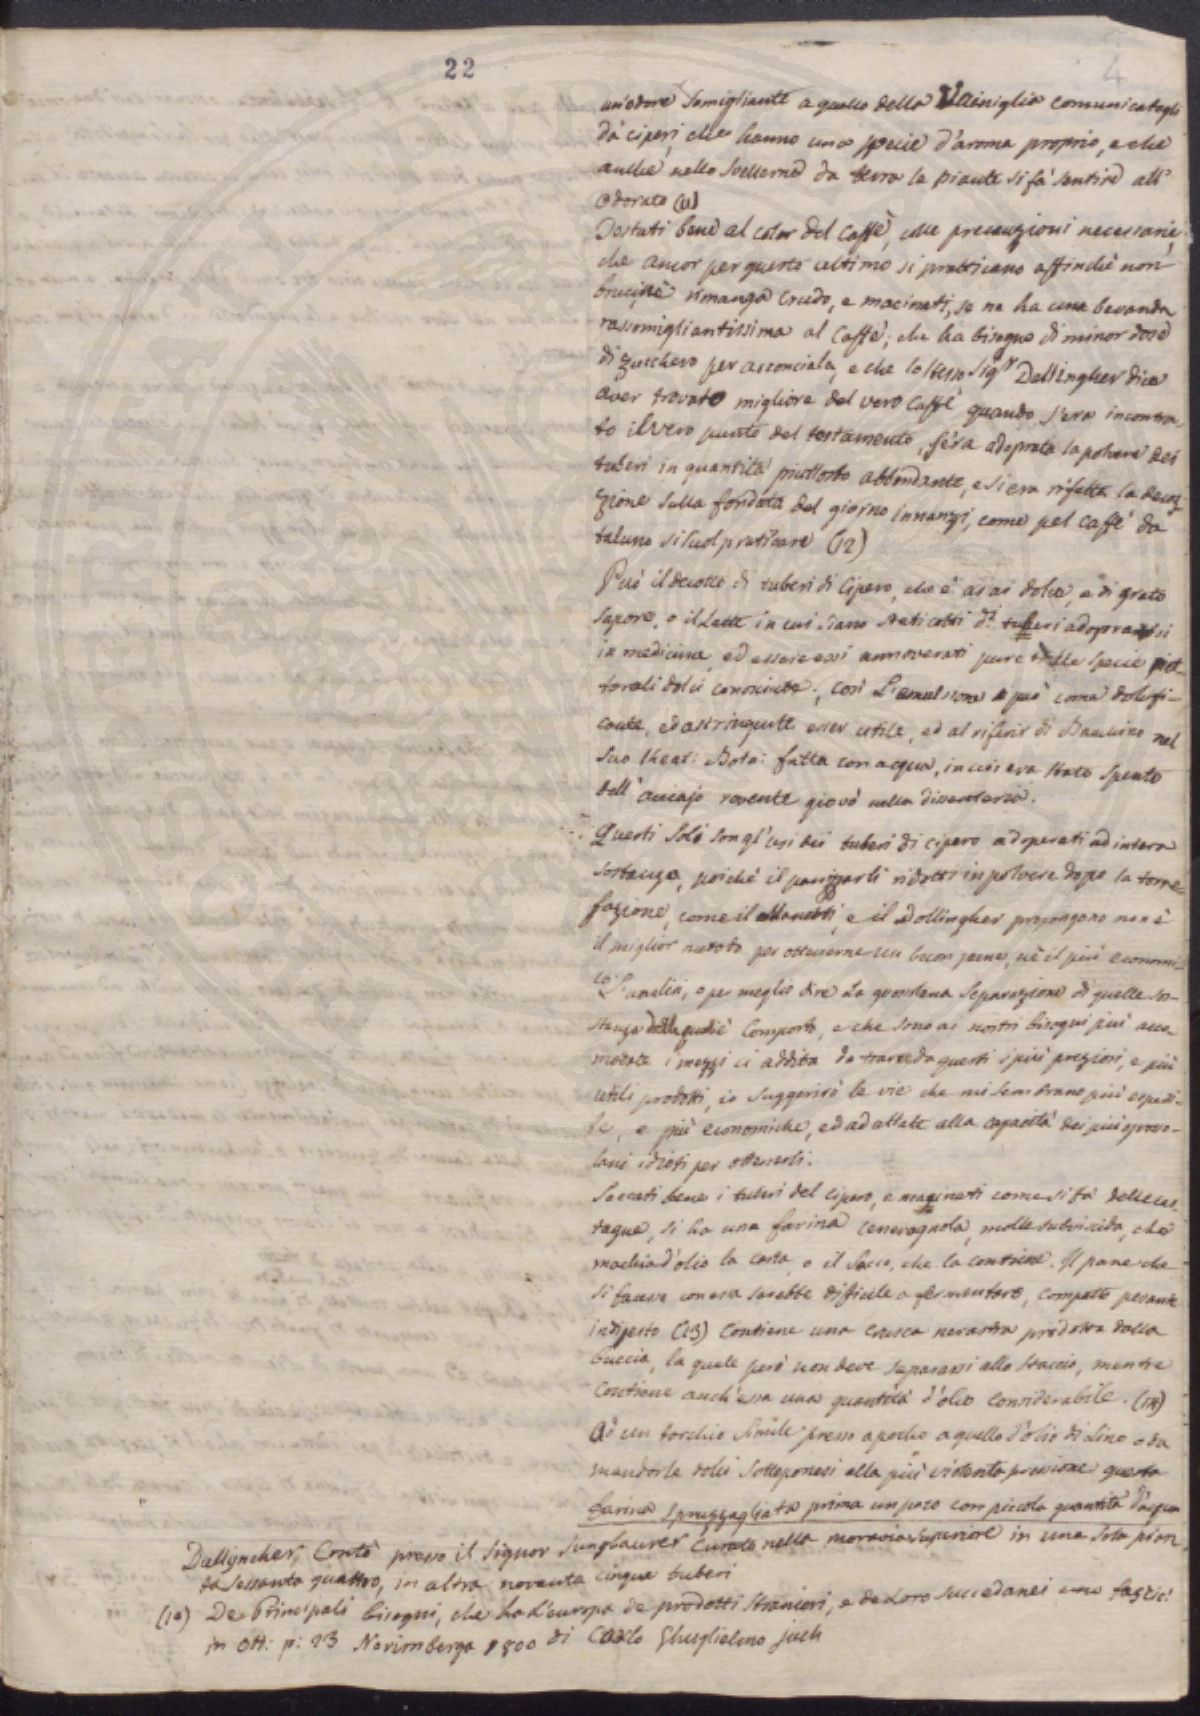 22
4
un'odore somigliante a quello della Vainiglia comunicatogli
da ciperi, che hanno una specie d'aroma proprio, e che
anche nello svellerne da terra le piante si fà sentire all'
odorato (11)
Tostati bene al color del Caffè, colle precauzioni necessarie,
che ancor per questo ultimo si pratticano affinchè non
bruci, nè rimanga crudo, e macinati, se ne ha una bevanda
rassomigliantissima al Caffè; che ha bisogno di minor dose
di zucchero per acconciala, e che lo stesso Sig.r Dallingher dice
aver trovato migliore del vero Caffè quando s'era incontra
to il vero punto del tostamento, s'era adoprata la polvere dei
tuberi in quantità piuttosto abbondante, e si era rifatta la decoz
zione sulla fondata del giorno innanzi, come pel caffè da
taluno si suol praticare (12)
Può il decotto di tuberi di Cipero, che è assai dolce, e di grato
sapore, o il Latte in cui siano stati cotti d.i tuberi adoprarsi
in medicina, ed essere essi annoverati pure nelle specie pet-
torali dolci conosciute; così L'emulsione può come dolcifi-
cante, ed astringente esser utile, ed al riferir di Bauuino nel
suo theat: Bota: fatta con acqua, in cui era stato spento
dell'acciajo rovente giovò nella dissenteria.
Questi soli son gl'usi dei tuberi di cipero adoperati ad intera
sostanza, poichè il panizzarli ridotti in polvere dopo la torre
fazione, come il Manetti, e il Dollingher propongono non è
il miglior metodo per ottenerne un buon pane, nè il più economi-
co. L'analisi, o per meglio dire la grossolana separazione di quelle sos-
stanze delle quali è Composto, e che sono ai nostri bisogni più acco-
modate i mezzi ci addita da trarre da questi i più preziosi, e più
utili prodotti, io suggerirò le vie che mi sembrano più spedi-
te, e più economiche, ed adattate alla capacità dei più grosso-
lani idioti per ottenerli.
Seccati bene i tuberi del cipero, e macinati come si fà delle cas-
tagne, si ha una farina cenerognola, molle subviscida, che
macchia d'olio la carta, o il sacco, che la contiene. Il pane che
si facesse con essa sarebbe difficile a fermentare, compatto pesante
indigesto (13) Contiene una crusca nerastra prodotta dalla
buccia, la quale però non deve separarsi allo staccio, mentre
contiene anch'essa una quantità d'olio considerabile. (14)
Ad un torchio simile presso a poco a quello d'olio di Lino o da
mandorle dolci sottoponesi alla più violenta pressione questa
farina spruzzagliata prima un poco con piccola quantità d'acqua
Dallyncher, Contò presso il signor Sunglaurer Curato nella moravia superiore in una sola pian
ta sessanta quattro, in altra novanta cinque tuberi
(10) De Principali bisogni, che ha l'europa de prodotti stranieri, e de loro succedanei uno
in Ott: p: 23 Norimberga 1800 di Carlo Ghuglielmo juch